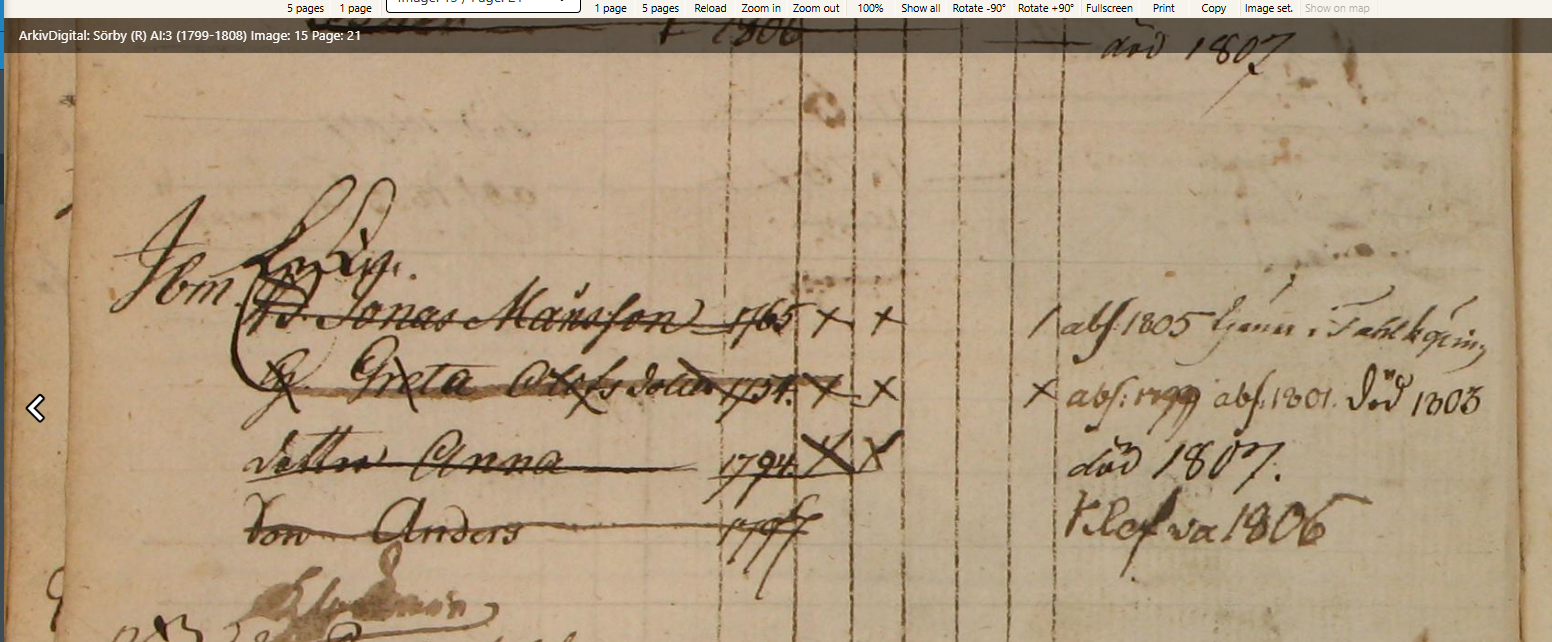 5 pages 1 page Image: 15 / Page: 21 1 page 5 pages Reload Zoom in Zoom out 100% Show all Rotate -90° Rotate +90° Fullscreen Print Copy Image set. Show on map
ArkivDigital: Sörby (R) AI:3 (1799-1808) Image: 15 Page: 21
1806
död 1807
Ibm.
Jonas Månsson 1765 x x / abs. 1805 i Fahlköping
Greta Olofsdotter 1754. x x x abs: 1799 abs. 1801. Död 1803
dotter Anna 1794. x x död 1807.
Son Anders 1797 Klefva 1806